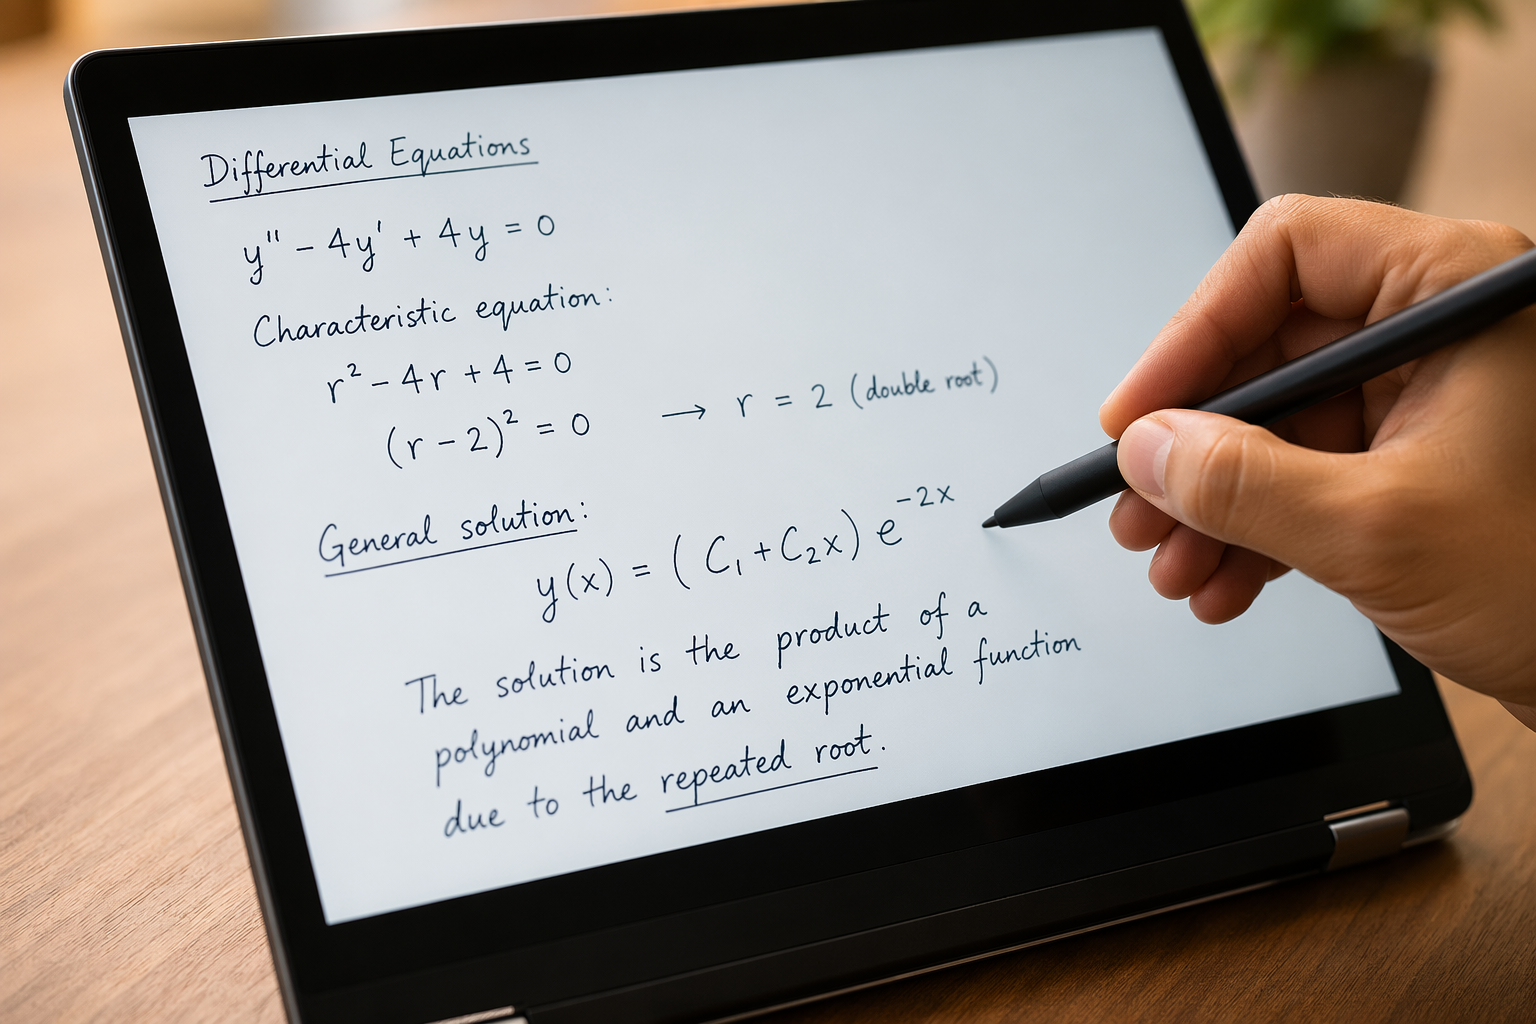 Differential Equations
y'' - 4y' + 4y = 0
Characteristic equation:
r² - 4r + 4 = 0
(r - 2)² = 0 → r = 2 (double root)
General solution:
y(x) = (C₁ + C₂x) e⁻²ˣ
The solution is the product of a
polynomial and an exponential function
due to the repeated root.